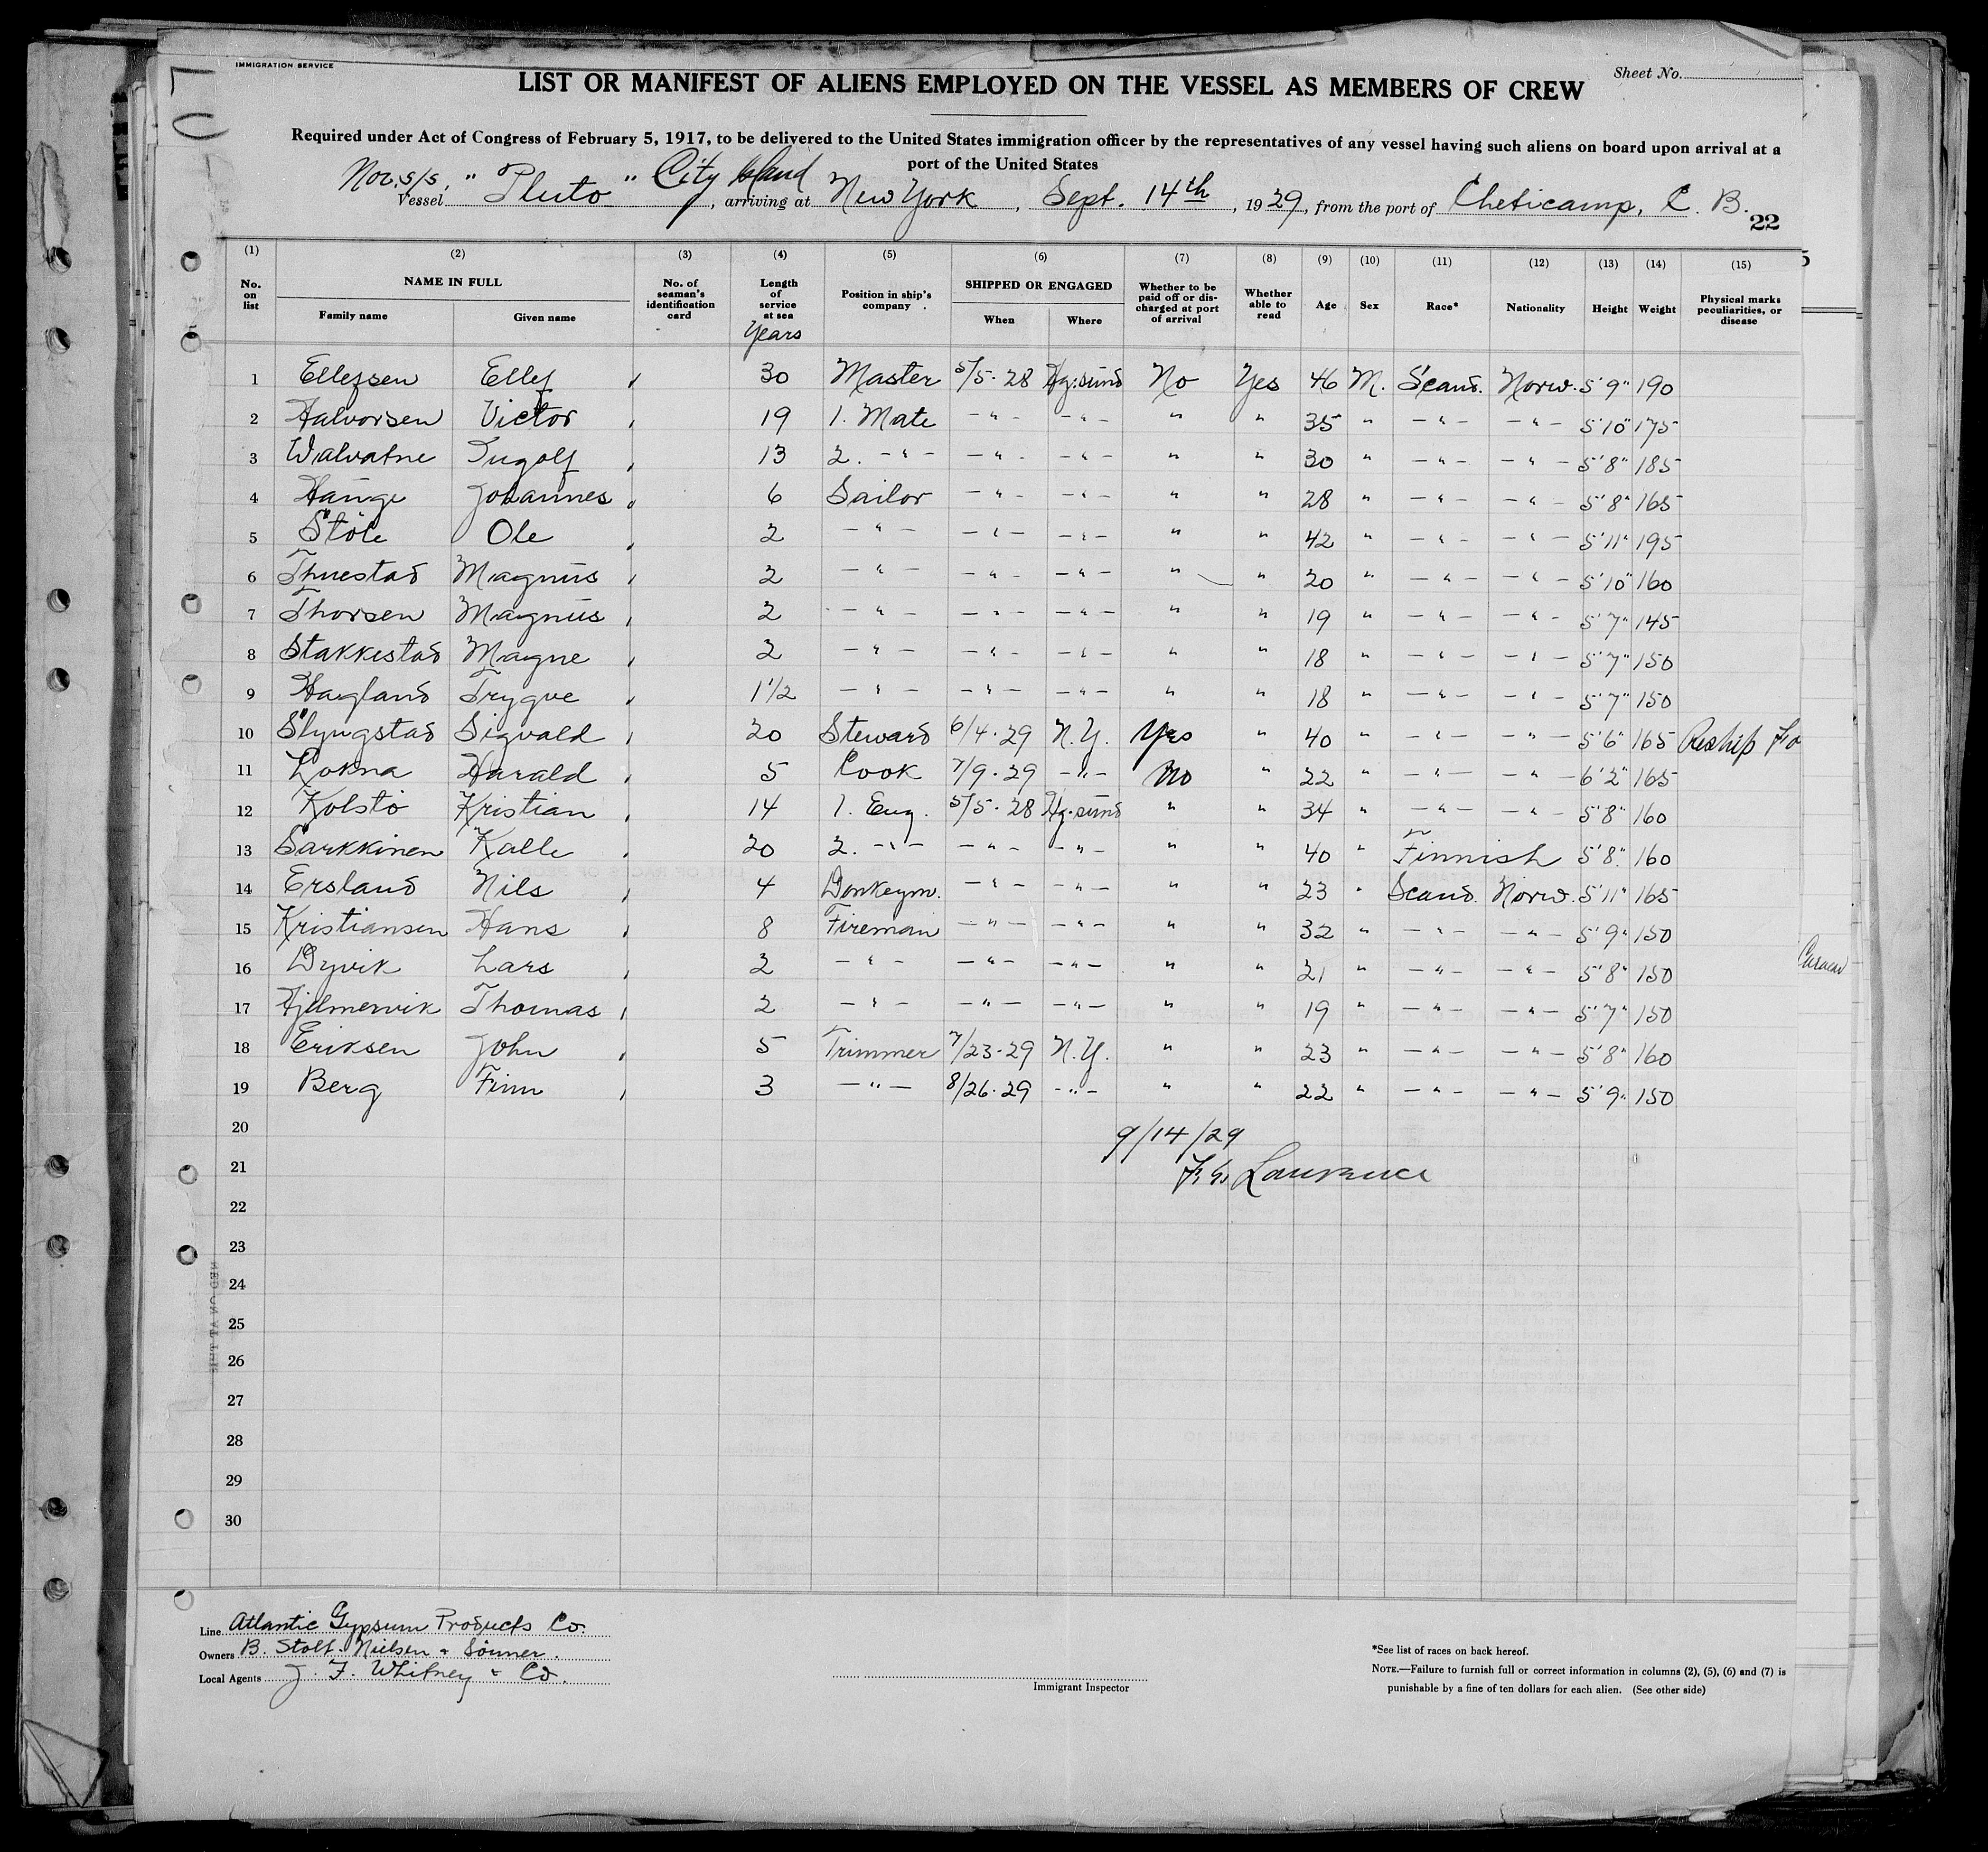 IMMIGRATION SERVICE
Sheet No.
LIST OR MANIFEST OF ALIENS EMPLOYED ON THE VESSEL AS MEMBERS OF CREW
Required under Act of Congress of February 5, 1917, to be delivered to the United States immigration officer by the representatives of any vessel having such aliens on board upon arrival at a
port of the United States
Nor. s/s. City Island
Vessel "Pluto", arriving at New York, Sept. 14th, 1929, from the port of Cheticamp, C. B.
22
(1) (2) (3) (4) (5) (6) (7) (8) (9) (10) (11) (12) (13) (14) (15)
No. on list NAME IN FULL Family name Given name No. of seaman's identification card Length of service at sea Years Position in ship's company SHIPPED OR ENGAGED When Where Whether to be paid off or discharged at port of arrival Whether able to read Age Sex Race* Nationality Height Weight Physical marks peculiarities, or disease
1 Ellefsen Ellef 30 Master 5/5-28 Hg:sund No Yes 46 M. Scand. Norw. 5'9" 190
2 Halvorsen Victor 19 1. Mate -"- -"- " " 35 " -"- -"- 5'10" 175
3 Walvatne Ingolf 13 2. -"- -"- -"- " " 30 " -"- -"- 5'8" 185
4 Hauge Johannes 6 Sailor -"- -"- " " 28 " -"- -"- 5'8" 165
5 Stöle Ole 2 -"- -"- -"- " " 42 " -"- -"- 5'11" 195
6 Thuestad Magnus 2 -"- -"- -"- " " 20 " -"- -"- 5'10" 160
7 Thorsen Magnus 2 -"- -"- -"- " " 19 " -"- -"- 5'7" 145
8 Stakkestad Magne 2 -"- -"- -"- " " 18 " -"- -"- 5'7" 150
9 Hagland Trygve 1 1/2 -"- -"- -"- " " 18 " -"- -"- 5'7" 150
10 Slyngstad Sigvald 20 Steward 6/4-29 N.Y. Yes " 40 " -"- -"- 5'6" 165 Reship Fo
11 Lokna Harald 5 Cook 7/9-29 -"- No " 22 " -"- -"- 6'2" 165
12 Kolstö Kristian 14 1. Eng. 5/5-28 Hg.sund " " 34 " -"- -"- 5'8" 160
13 Sarkkinen Kalle 20 2. -"- -"- -"- " " 40 " Finnish 5'8" 160
14 Ersland Nils 4 Donkeym. -"- -"- " " 23 " Scand. Norw. 5'11" 165
15 Kristiansen Hans 8 Fireman -"- -"- " " 32 " -"- -"- 5'9" 150
16 Dyvik Lars 2 -"- -"- -"- " " 21 " -"- -"- 5'8" 150
17 Hjelmervik Thomas 2 -"- -"- -"- " " 19 " -"- -"- 5'7" 150
18 Eriksen John 5 Trimmer 7/23-29 N.Y. " " 23 " -"- -"- 5'8" 160
19 Berg Finn 3 -"- 8/26-29 -"- " " 22 " -"- -"- 5'9" 150
20 9/14/29
21 Lawrence
22
23
24
25
26
27
28
29
30
Line Atlantic Gypsum Products Co.
Owners B. Stolt-Nielsen & Sönner.
Local Agents J. F. Whitney & Co.
Immigrant Inspector
*See list of races on back hereof.
NOTE.—Failure to furnish full or correct information in columns (2), (5), (6) and (7) is
punishable by a fine of ten dollars for each alien. (See other side)